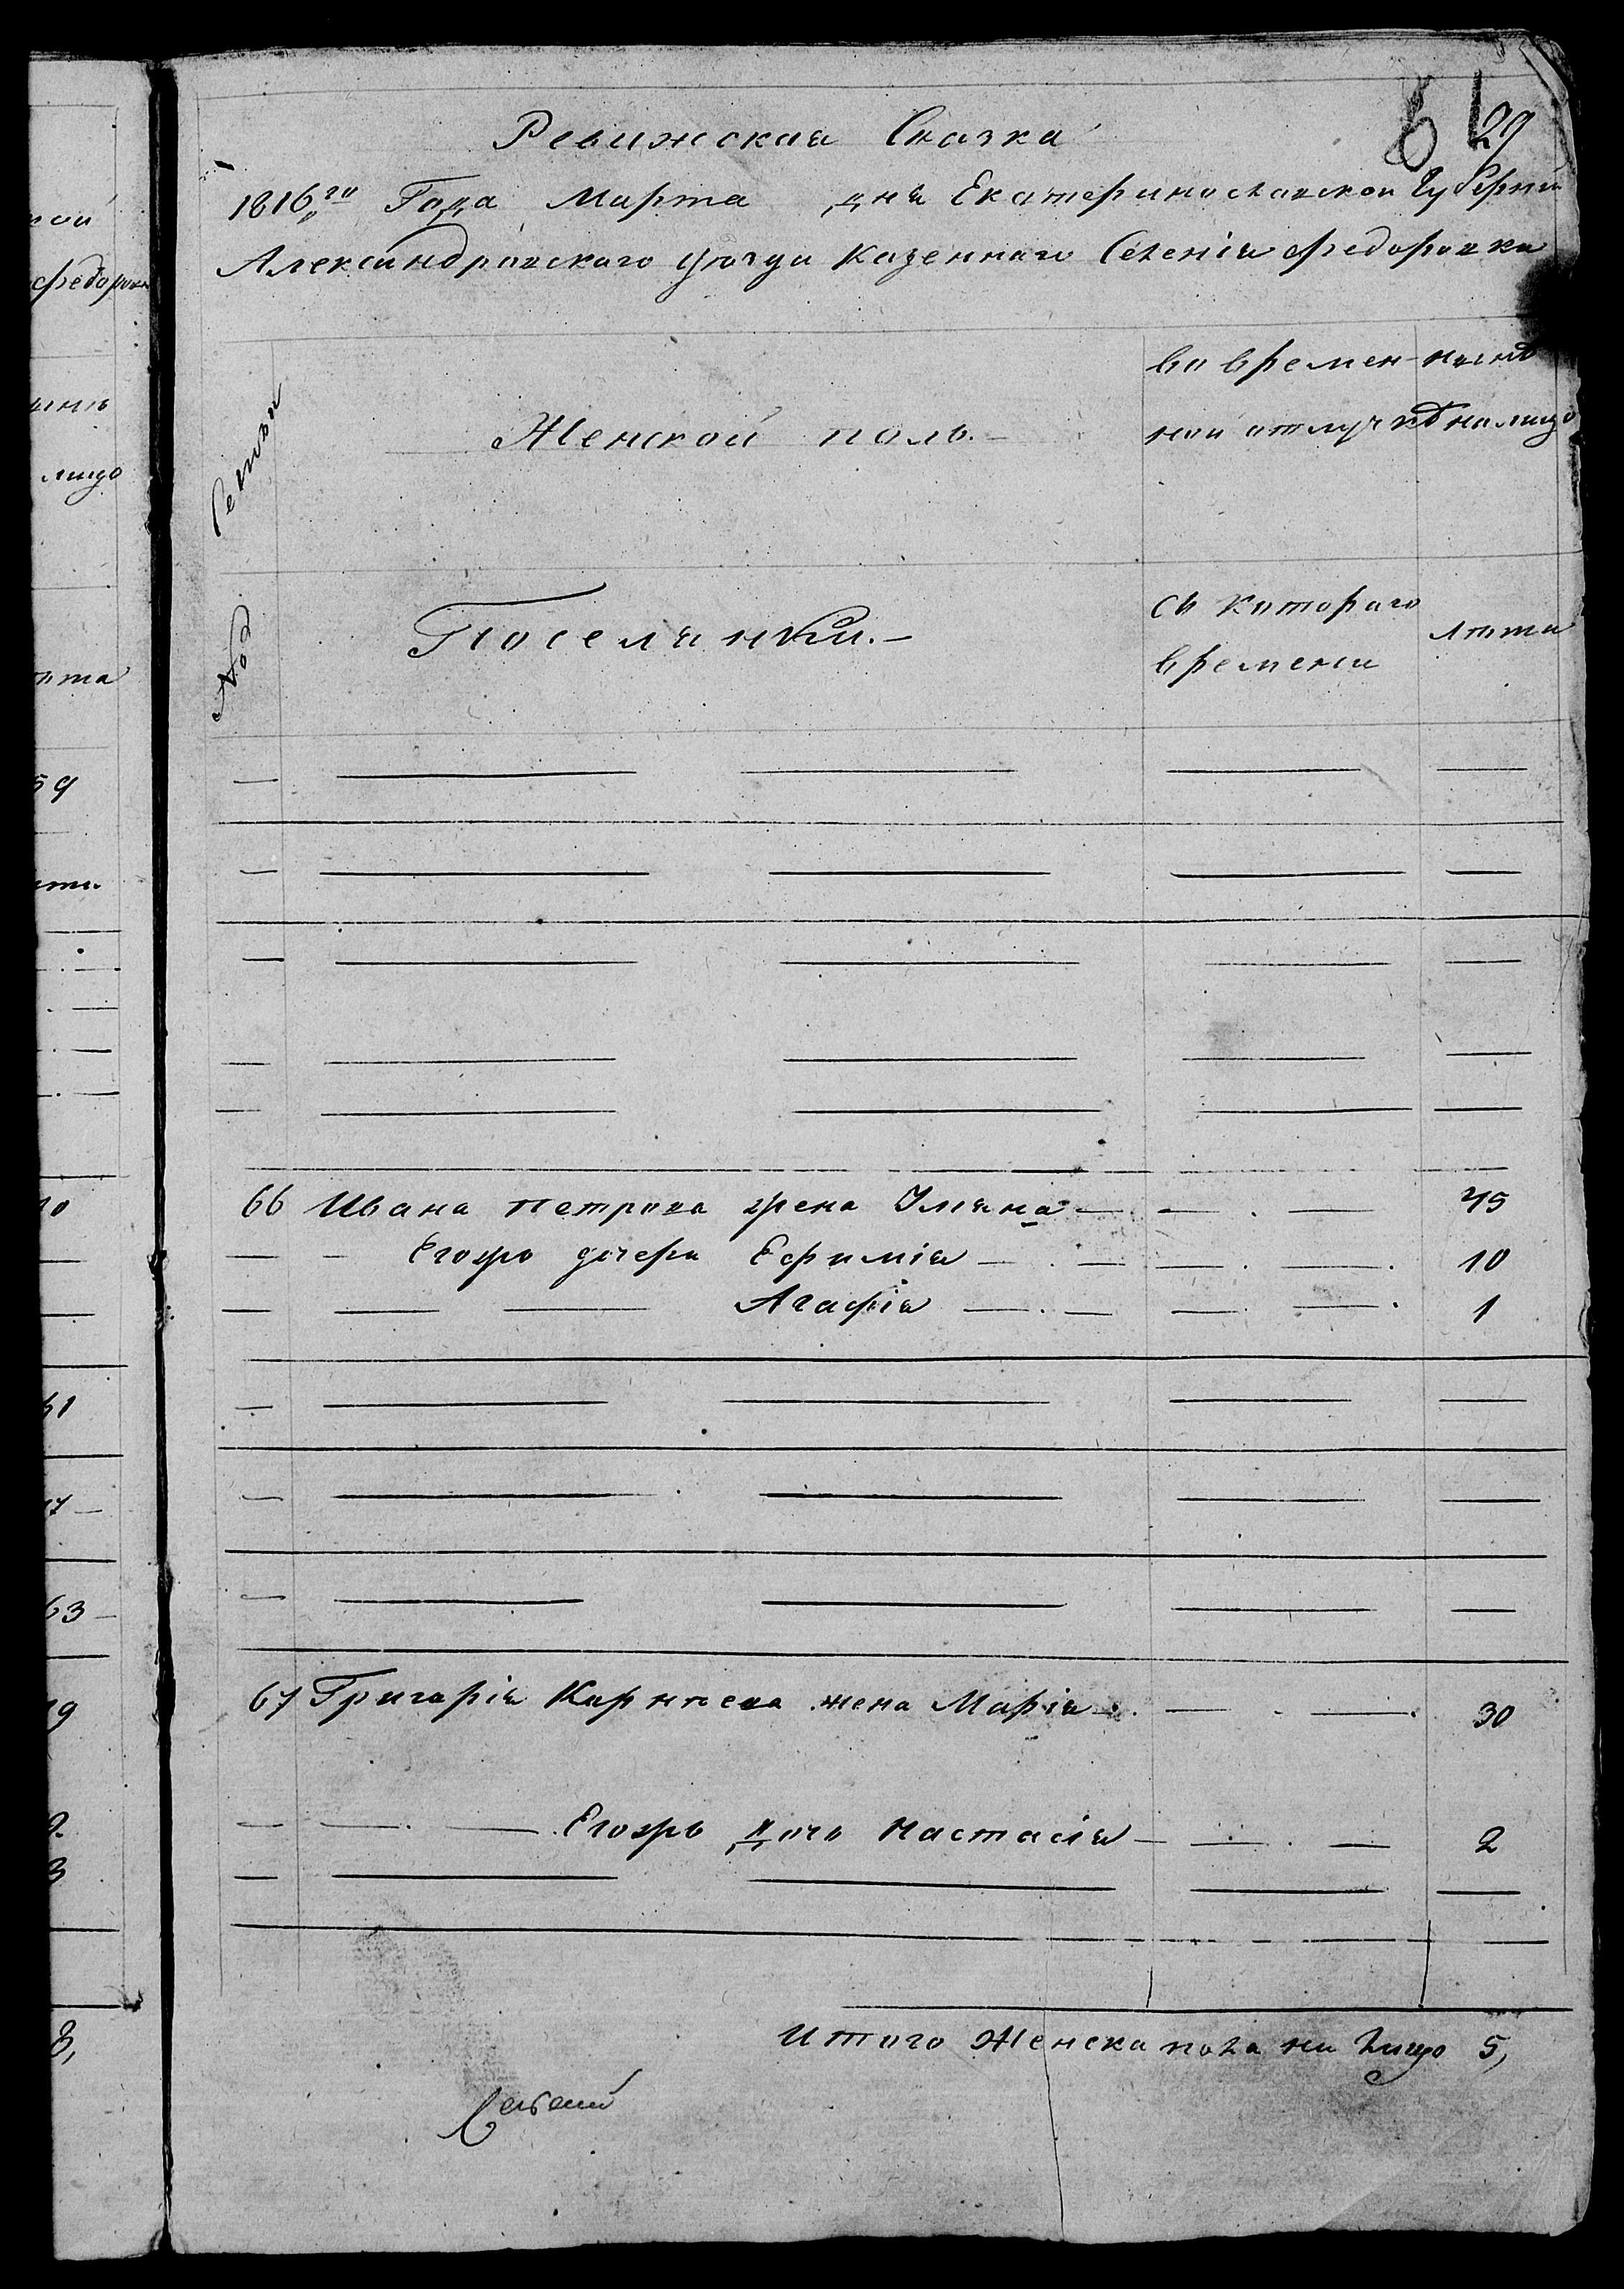 кой
Федоровк
лицо
ѣта
59
10
61
63
81 29
Ревижская Сказка
1816го Года Марта дня Екатеринославской Губернїи
Александровского уѣзда Казенного Селенїя Федоровки
Семьи
№д
Женской полъ.
во времен-
ной отлучкѣ
нынѣ
на лицо
Поселянки.
съ котораго
времени
лѣта
66 Ивана Петрова жена Уляна 45
Егожъ дочери Ефимїя 10
Агафїя 1
67 Григорїя Корнѣева жена Марїя 30
Егожъ дочь Настасїя 2
Итого Женска пола на лицо 5,